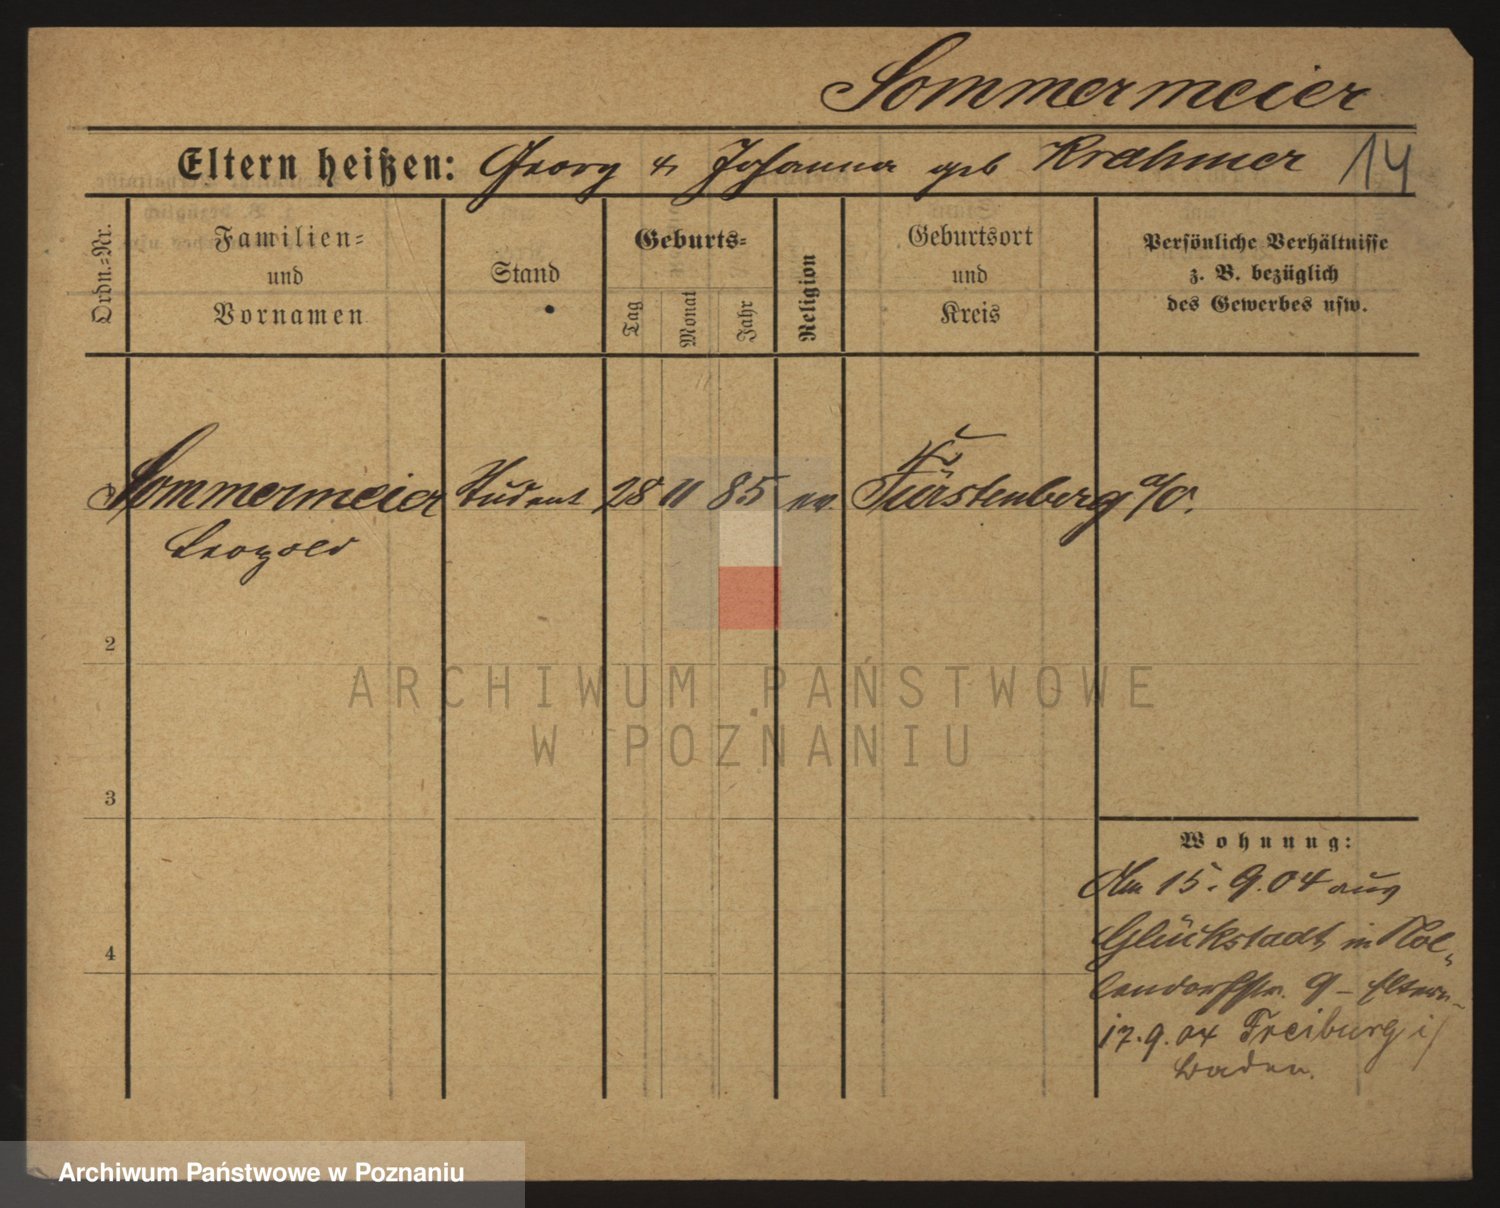 Sommermeier
Eltern heißen: Georg & Johanna geb Kraehmer 14
Ordn.-Nr.
Familien=
und
Vornamen
Stand
Geburts=
Tag
Monat
Jahr
Religion
Geburtsort
und
Kreis
Persönliche Verhältnisse
z. B. bezüglich
des Gewerbes usw.
Sommermeier Student 28 11 85 ev. Fürstenberg a/O.
Leopold
2
3
4
Wohnung:
Am 15. 9. 04 aus
Glückstadt in Nol-
lendorffstr. 9 - Eltern -
17. 9. 04 Freiburg i/
Baden.
ARCHIWUM PAŃSTWOWE
W POZNANIU
Archiwum Państwowe w Poznaniu